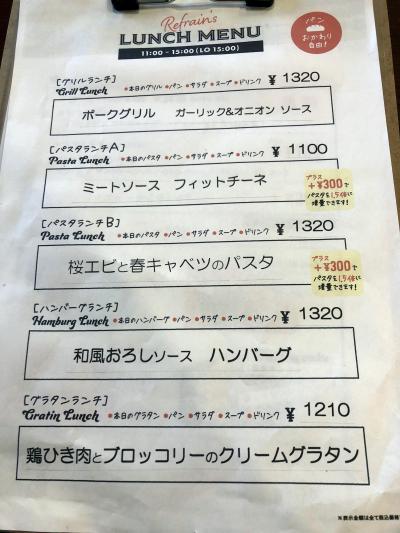 Refrain's
LUNCH MENU
11:00 - 15:00 (LO 15:00)
パン
おかわり
自由!
[グリルランチ]
Grill Lunch ●本日のグリル ●パン ●サラダ ●スープ ●ドリンク ¥ 1320
ポークグリル ガーリック&オニオン ソース
[パスタランチA]
Pasta Lunch ●本日のパスタ ●パン ●サラダ ●スープ ●ドリンク ¥ 1100
ミートソース フィットチーネ
プラス
+¥300で
パスタを1.5倍に
増量できます!
[パスタランチB]
Pasta Lunch ●本日のパスタ ●パン ●サラダ ●スープ ●ドリンク ¥ 1320
桜エビと春キャベツのパスタ
プラス
+¥300で
パスタを1.5倍に
増量できます!
[ハンバーグランチ]
Hamburg Lunch ●本日のハンバーグ ●パン ●サラダ ●スープ ●ドリンク ¥ 1320
和風おろしソース ハンバーグ
[グラタンランチ]
Gratin Lunch ●本日のグラタン ●パン ●サラダ ●スープ ●ドリンク ¥ 1210
鶏ひき肉とブロッコリーのクリームグラタン
※表示金額は全て税込価格